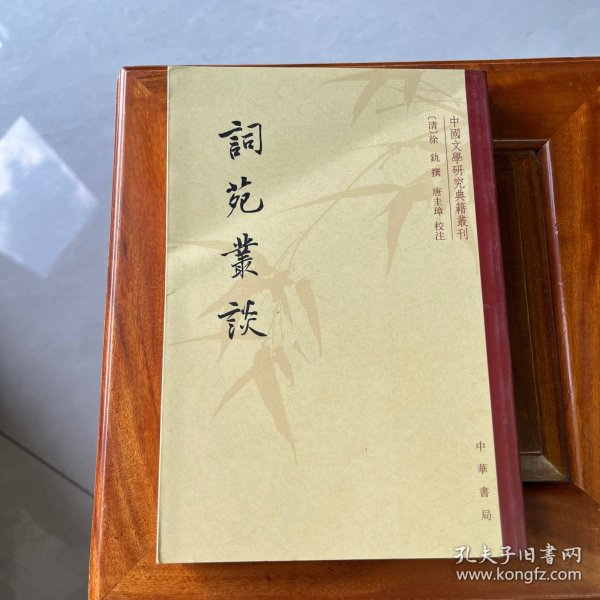 中國文學研究典籍叢刊
〔清〕徐釚 撰 唐圭璋 校注
詞苑叢談
中華書局
孔夫子旧书网
www.kongfz.com